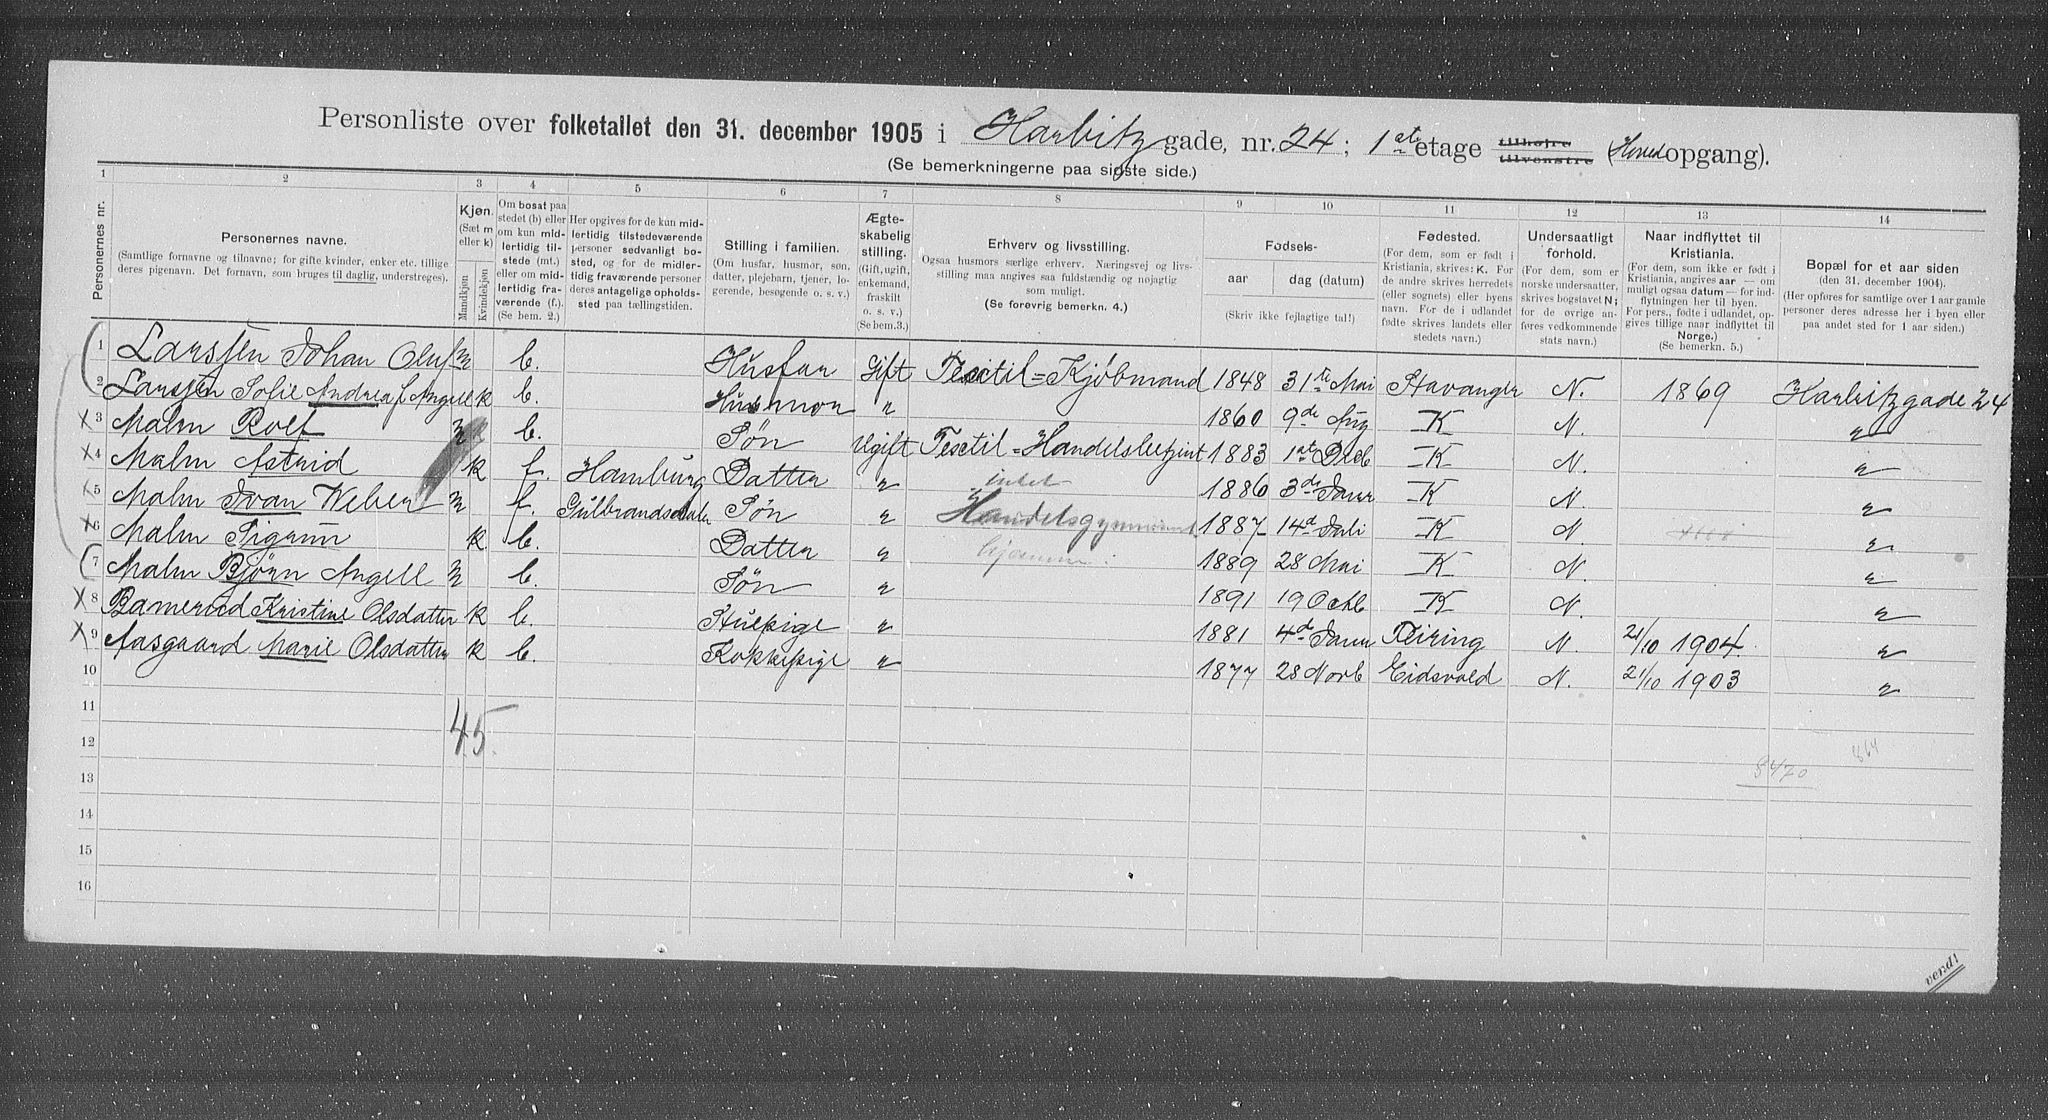 Personliste over folketallet den 31. december 1905 i Harbitz gade, nr. 24; 1ste etage tilhøjre tilvenstre (Hoved opgang).
(Se bemerkningerne paa sidste side.)
1 2 3 4 5 6 7 8 9 10 11 12 13 14
Personernes nr.
Personernes navne. (Samtlige fornavne og tilnavne; for gifte kvinder, enker etc. tillige deres pigenavn. Det fornavn, som bruges til daglig, understreges).
Kjøn. (Sæt m eller k) Mandkjøn Kvindekjøn
Om bosat paa stedet (b) eller om kun midlertidig tilstede (mt.) eller om midlertidig fraværende (f.). (Se bem. 2.)
Her opgives for de kun midlertidig tilstedeværende personer sedvanligt bosted, og for de midlertidig fraværende personer deres antagelige opholdssted paa tællingstiden.
Stilling i familien. (Om husfar, husmor, søn, datter, plejebarn, tjener, logerende, besøgende o. s. v.)
Ægteskabelig stilling. (Gift, ugift, enkemand, fraskilt o. s. v.) (Se bem. 3.)
Erhverv og livsstilling. Ogsaa husmors særlige erhverv. Næringsvej og livsstilling maa angives saa fuldstændig og nøjagtig som muligt. (Se forøvrig bemerkn. 4.)
Fødsels- aar dag (datum) (Skriv ikke fejlagtige tal!)
Fødested. (For dem, som er født i Kristiania, skrives: K. For de andre skrives herredets (eller sognets) eller byens navn. For de i udlandet fødte skrives landets eller stedets navn.)
Undersaatligt forhold. (For dem, som er norske undersaatter, skrives bogstavet N; for de øvrige anføres vedkommende stats navn.)
Naar indflyttet til Kristiania. (For dem, som ikke er født i Kristiania, angives aar — om muligt ogsaa datum — for indflytningen her til byen. For pers., fødte i udlandet, opgives tillige naar indflyttet til Norge.) (Se bemerkn. 5.)
Bopæl for et aar siden (den 31. december 1904). (Her opføres for samtlige over 1 aar gamle personer deres adresse her i byen eller paa andet sted for 1 aar siden.)
1 Larssen Johan Oluf m b. Husfar Gift Textil=Kjøbmand 1848 31te Mai Stavanger N. 1869 Harbitzgade 24
2 Larssen Sofie Andrea f. Angell k b. Husmor " 1860 9de Aug K N. "
3 Malm Rolf m b. Søn Ugift Textil=Handelsbetjent 1883 1ste Decb K N. "
4 Malm Astrid k f. Hamburg Datter " intet 1886 3de Janr K N. "
5 Malm Ivan Weber m f. Gulbrandsdalen Søn " Handelsgymnasiet 1887 14d Juli K N. "
6 Malm Sigrun k b. Datter " hjemme 1889 28 Mai K N. "
7 Malm Bjørn Angell m b. Søn " 1891 19 Octb K N. "
8 Bamerud Kristine Olsdatter k b. Stuepige " 1881 4de Janr Feiring N. 21/10 1904. "
9 Aasgaard Marie Olsdatter k b. Kokkepige " 1877 28 Novb Eidsvold N. 21/10 1903 "
10
11
45.
12
864
13
8470
14
15
16
vend!